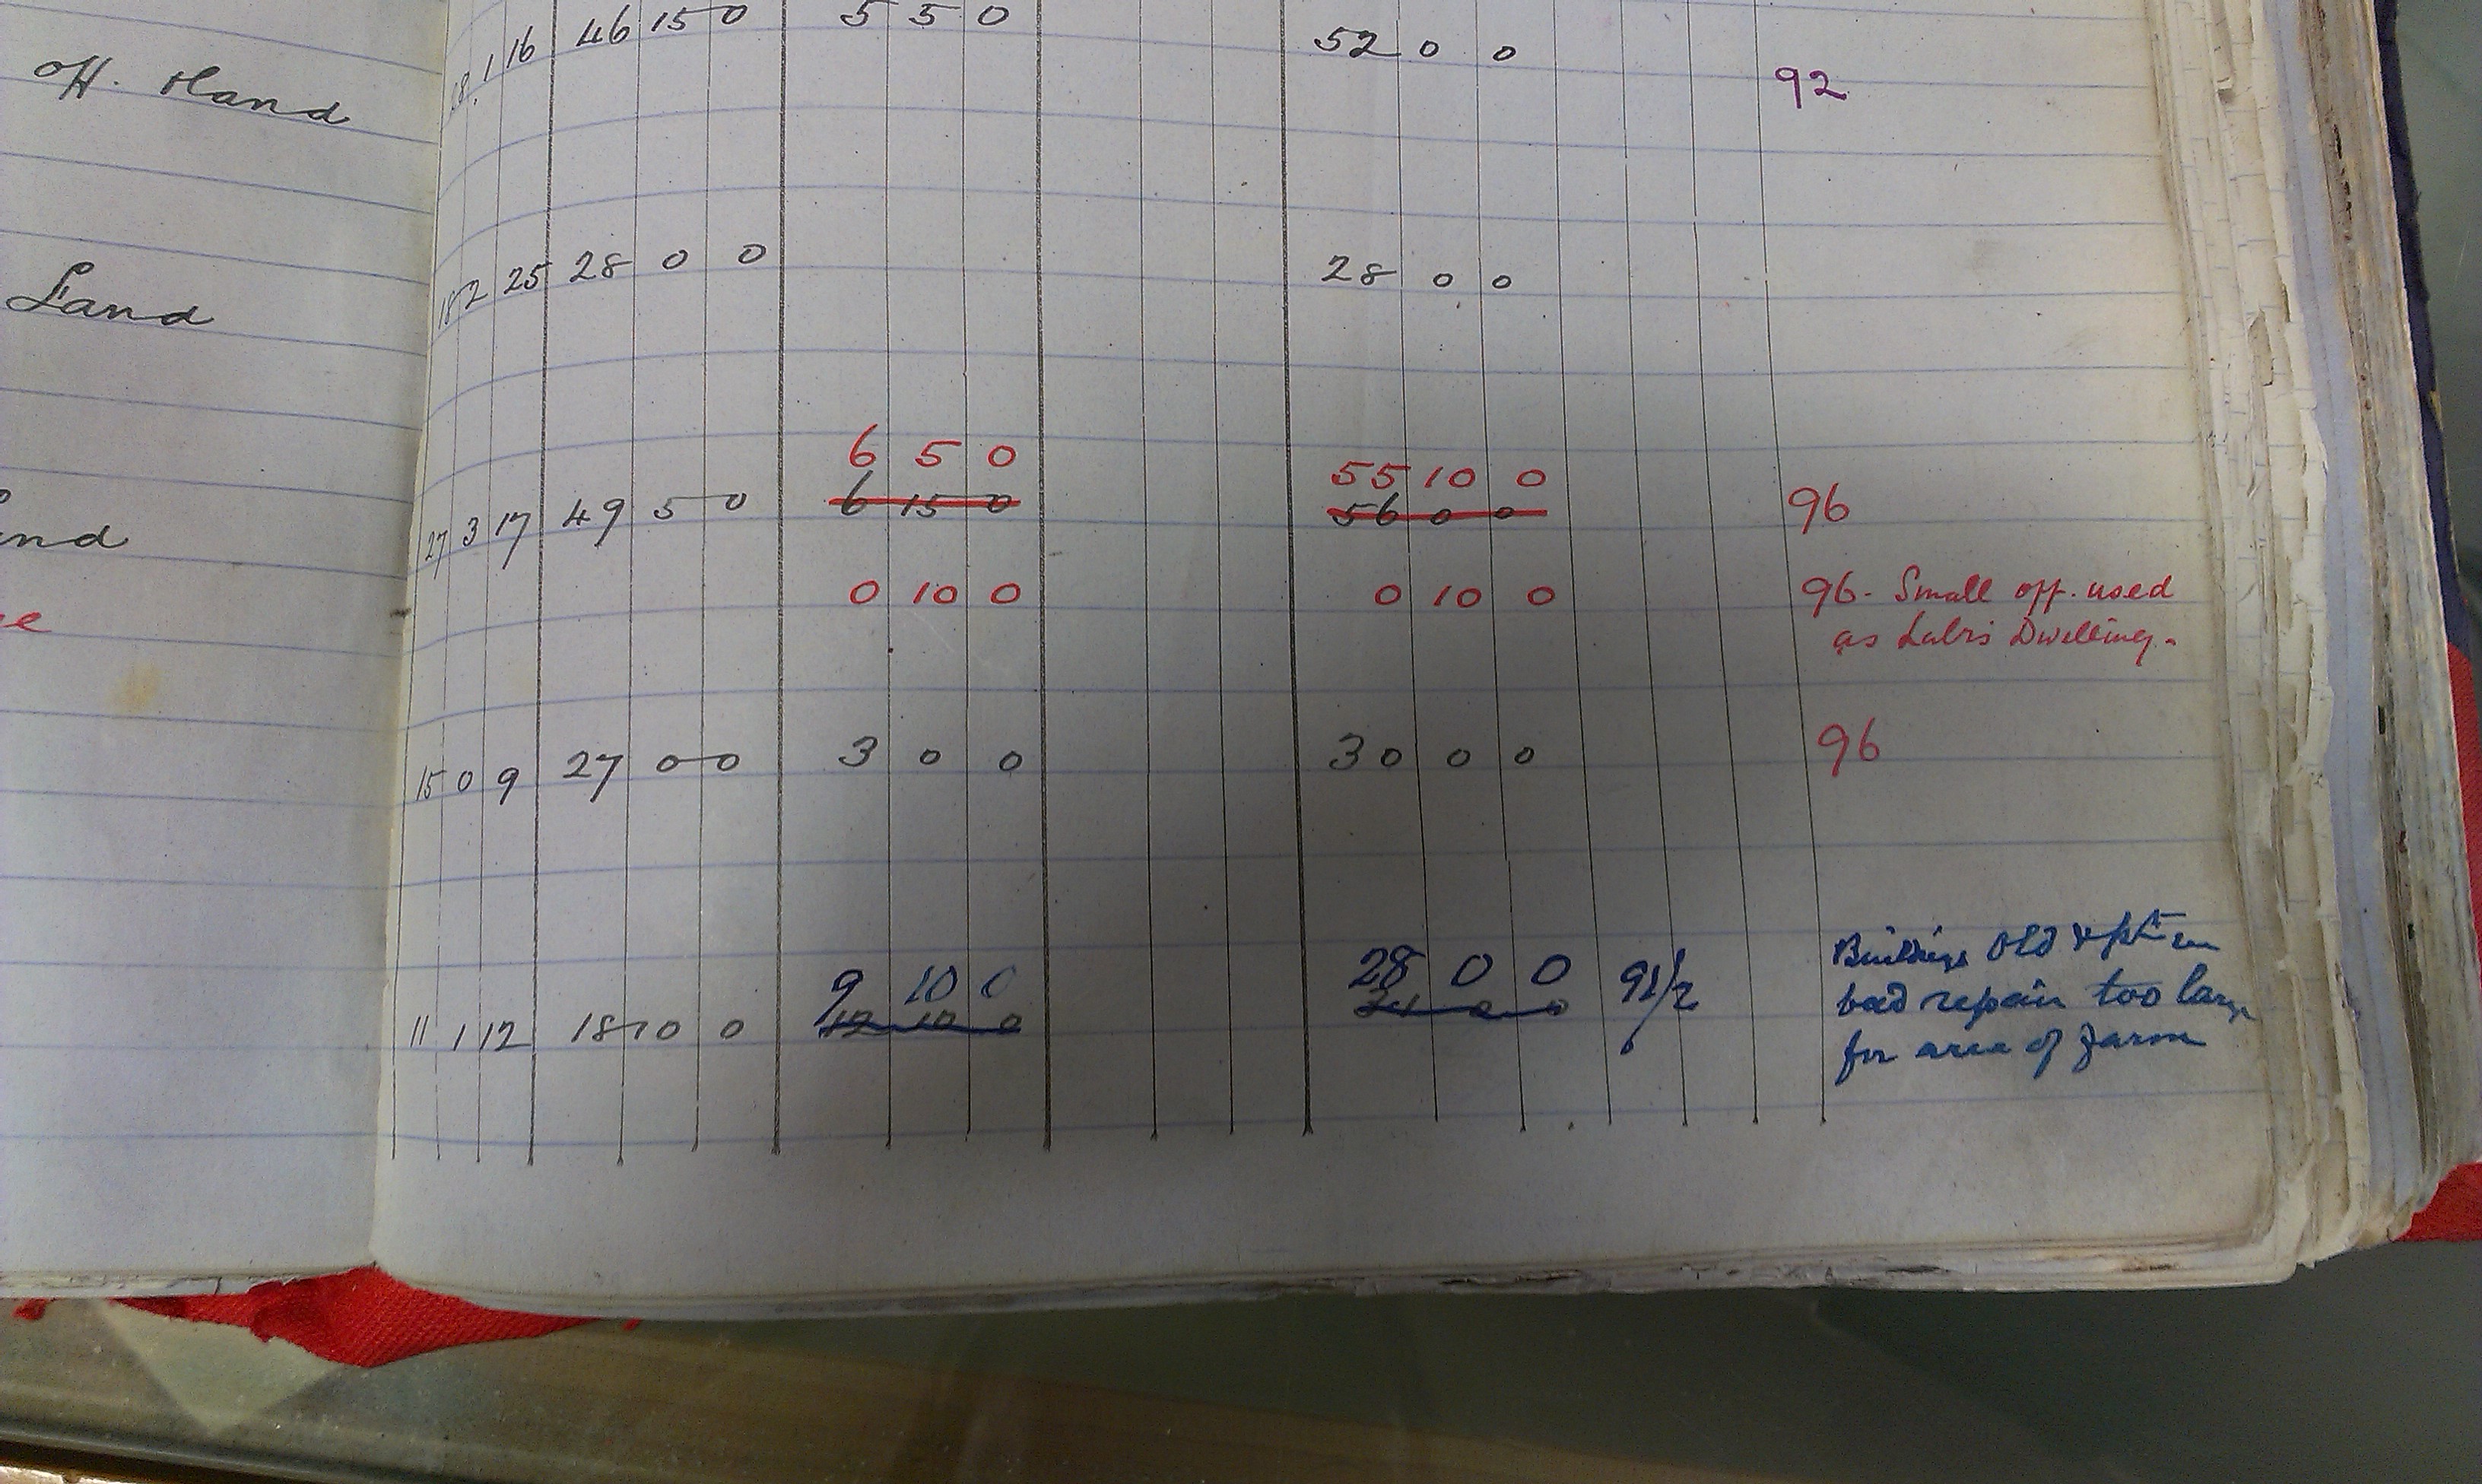 16 46 15 0 5 5 0 52 0 0
off. Hand 92
18 2 25 28 0 0 28 0 0
Land
6 5 0 55 10 0
27 3 17 49 5 0 6 15 0 56 0 0 96
nd
0 10 0 0 10 0 96. Small off. used
e as Labrs Dwelling.
15 0 9 27 0 0 3 0 0 30 0 0 96
Buildings Old & pt in
9 10 0 28 0 0 bad repair too large
11 1 12 18 10 0 12 10 0 0 0 for area of farm